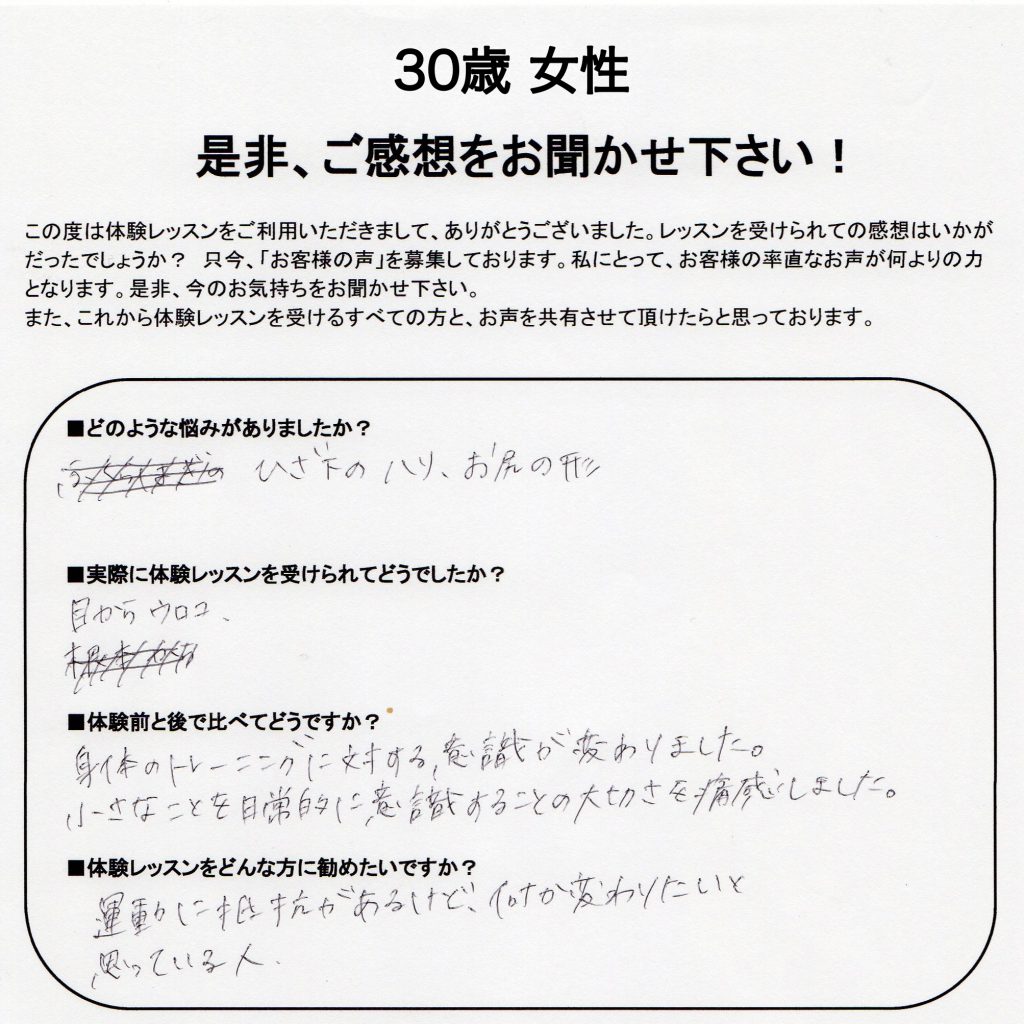 30歳 女性
是非、ご感想をお聞かせ下さい！
この度は体験レッスンをご利用いただきまして、ありがとうございました。レッスンを受けられての感想はいかが
だったでしょうか？　只今、「お客様の声」を募集しております。私にとって、お客様の率直なお声が何よりの力
となります。是非、今のお気持ちをお聞かせ下さい。
また、これから体験レッスンを受けるすべての方と、お声を共有させて頂けたらと思っております。
■どのような悩みがありましたか？
ひざ下のハリ、お尻の形
■実際に体験レッスンを受けられてどうでしたか？
目からウロコ、
■体験前と後で比べてどうですか？
身体のトレーニングに対する意識が変わりました。
小さなことを日常的に意識することの大切さを痛感しました。
■体験レッスンをどんな方に勧めたいですか？
運動に抵抗があるけど、何か変わりたいと
思っている人.